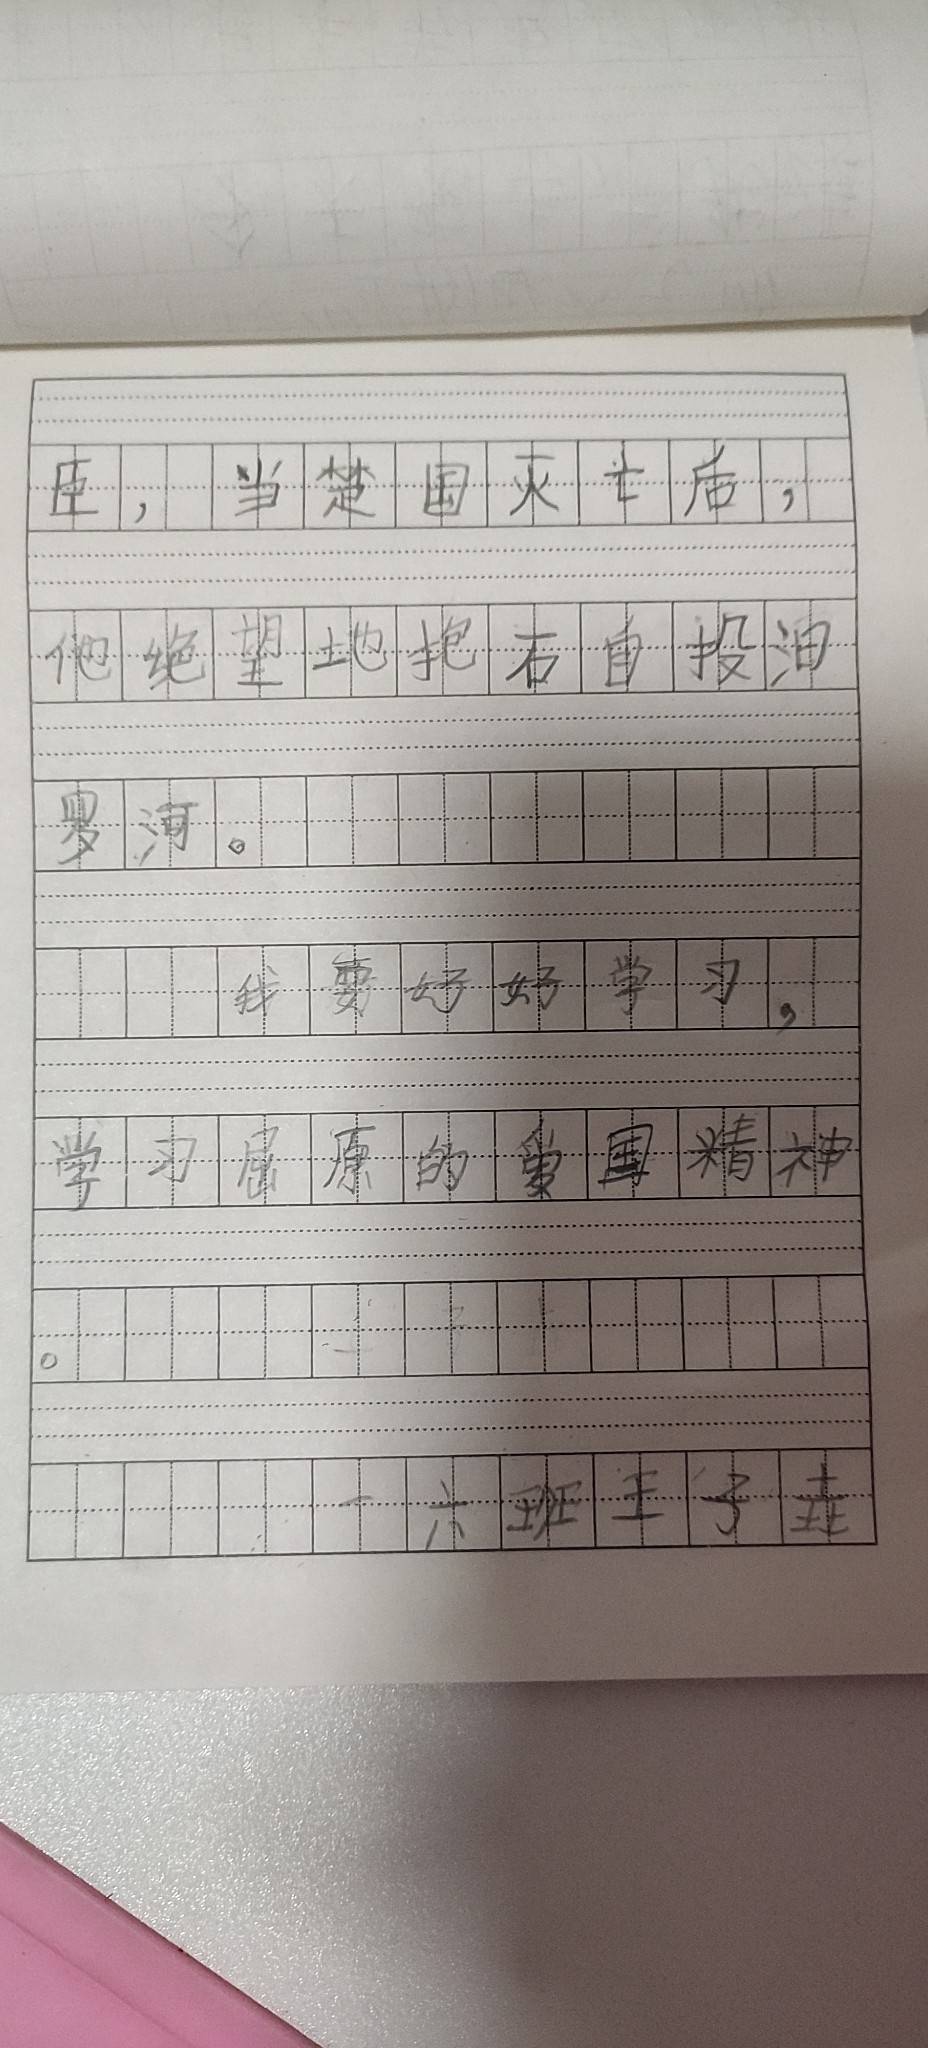 臣，当楚国灭亡后，
他绝望地抱石自投汨
罗河。
我要好好学习，
学习屈原的爱国精神
。
一六班王子垚